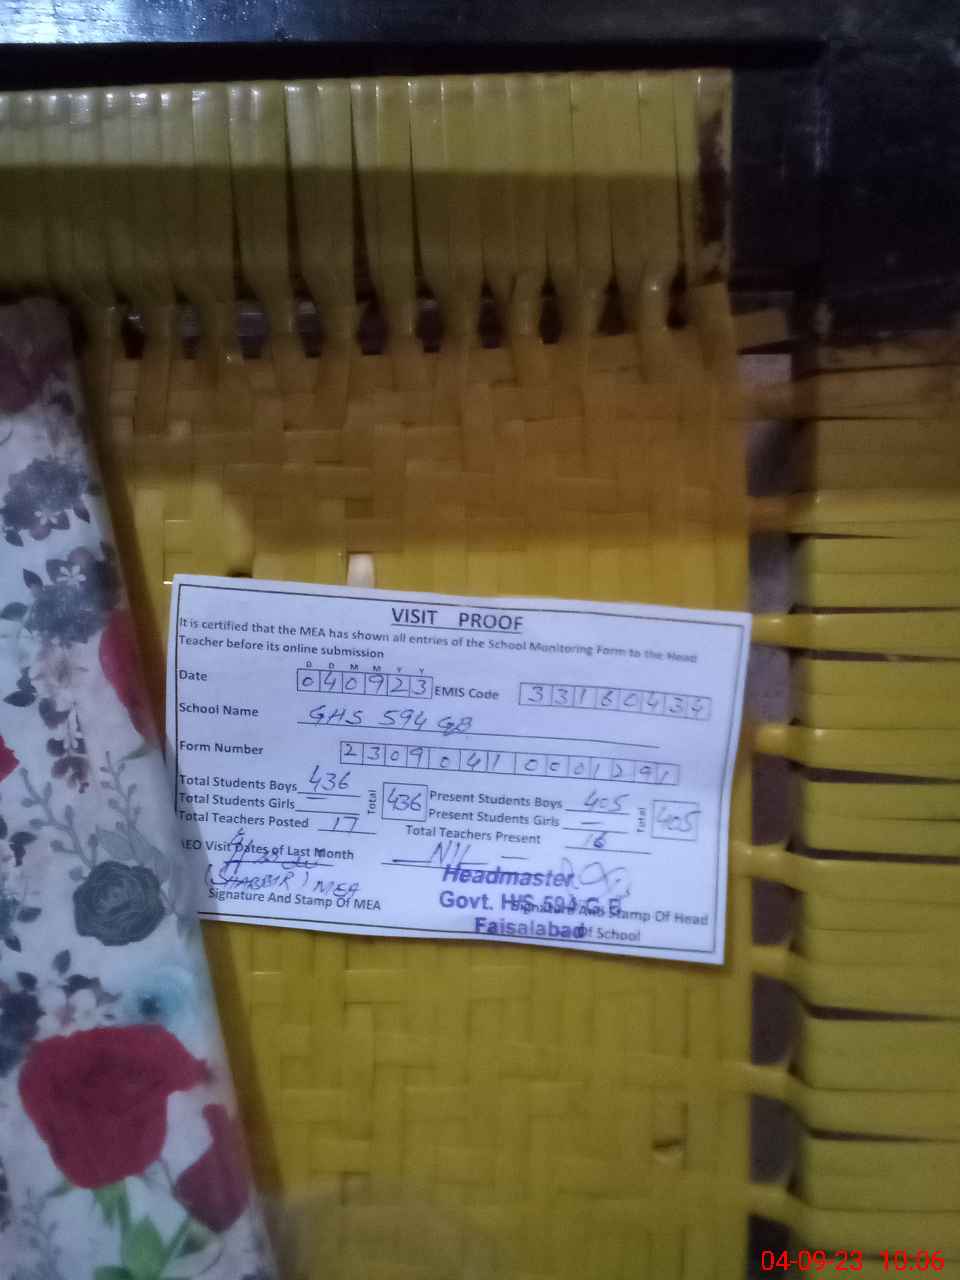 VISIT PROOF
It is certified that the MEA has shown all entries of the School Monitoring Form to the Head
Teacher before its online submission
D D M M Y Y
Date 040923 EMIS Code 33160434
School Name GHS 594 GB
Form Number 2309041 0001291
Total Students Boys 436 Total 436 Present Students Boys 405 Total 405
Total Students Girls — Present Students Girls —
Total Teachers Posted 17 Total Teachers Present 16
AEO Visit Dates of Last Month Nil —
(SHABBIR) MEA
Signature And Stamp Of MEA
Headmaster
Govt. H/S 594 G.B
Faisalabad
Signature And Stamp Of Head
Of School
04-09-23 10:06